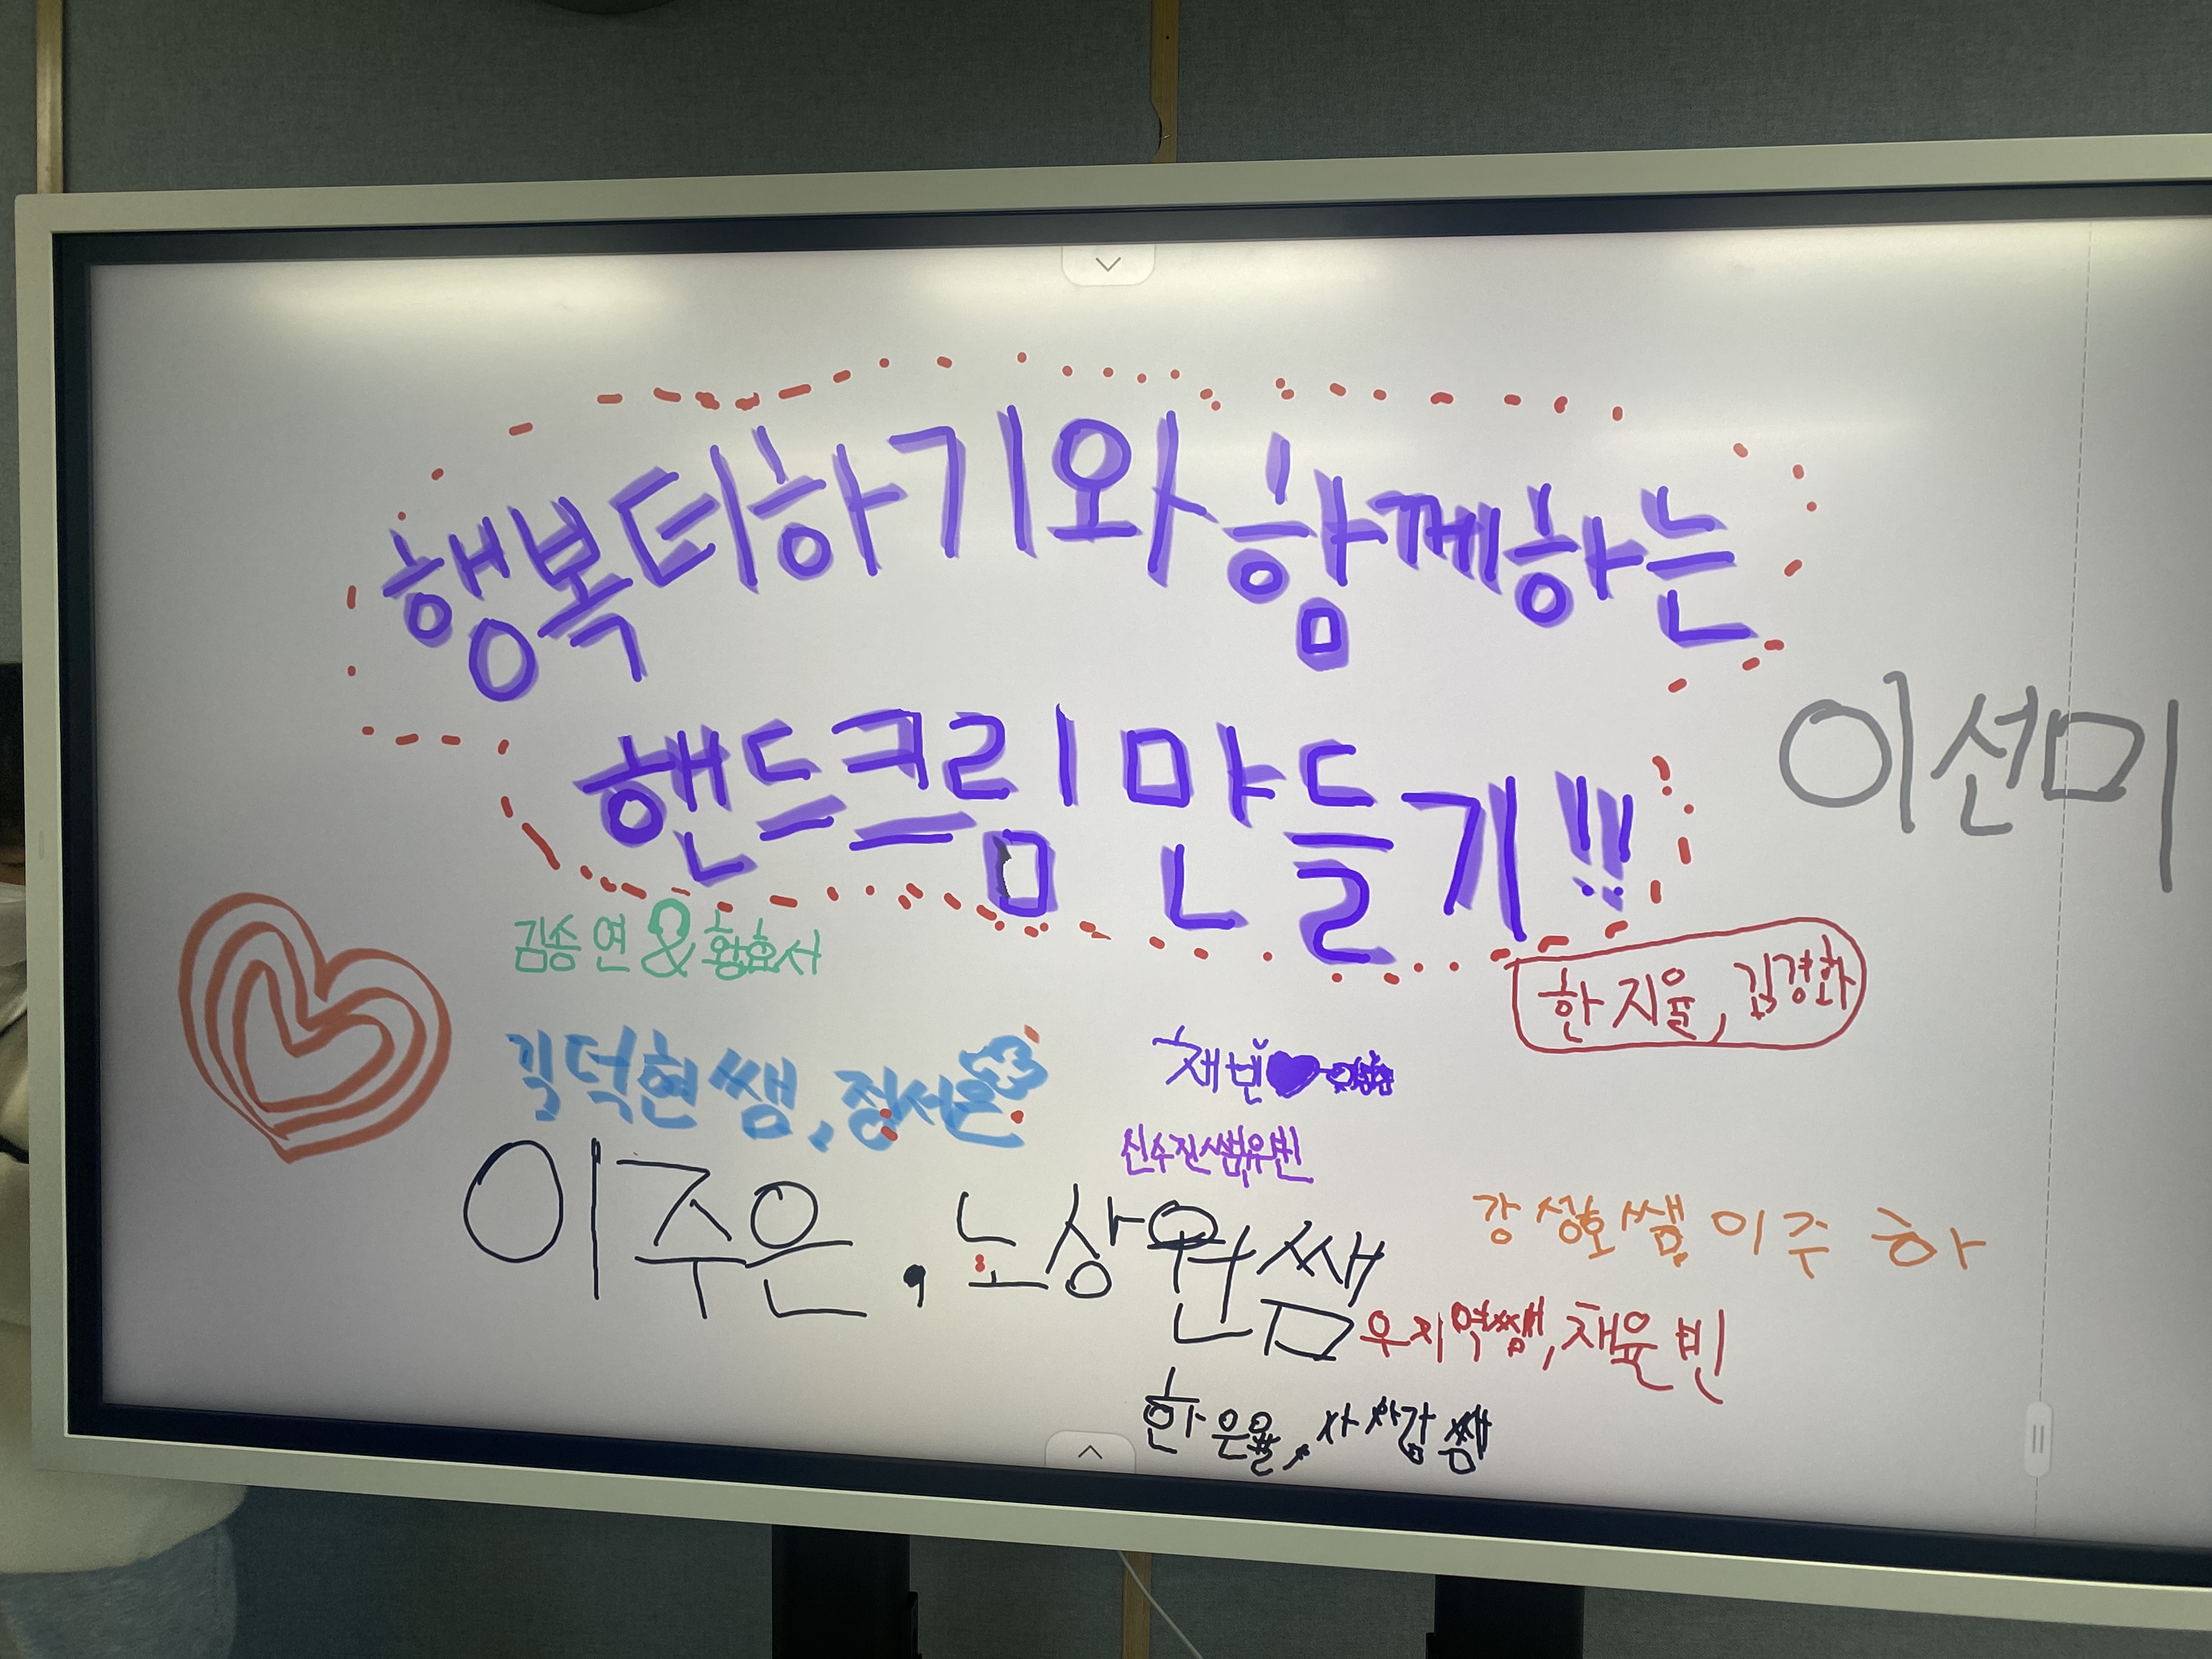 행복더하기와 함께하는
핸드크림 만들기!!
이선미
김승연 & 황효서
한지율, 김경화
덕현쌤, 장서윤
채빈
신수진쌤, 유빈
이주은, 노상원쌤
강성호쌤 이주하
우지역쌤, 채윤빈
한은율,